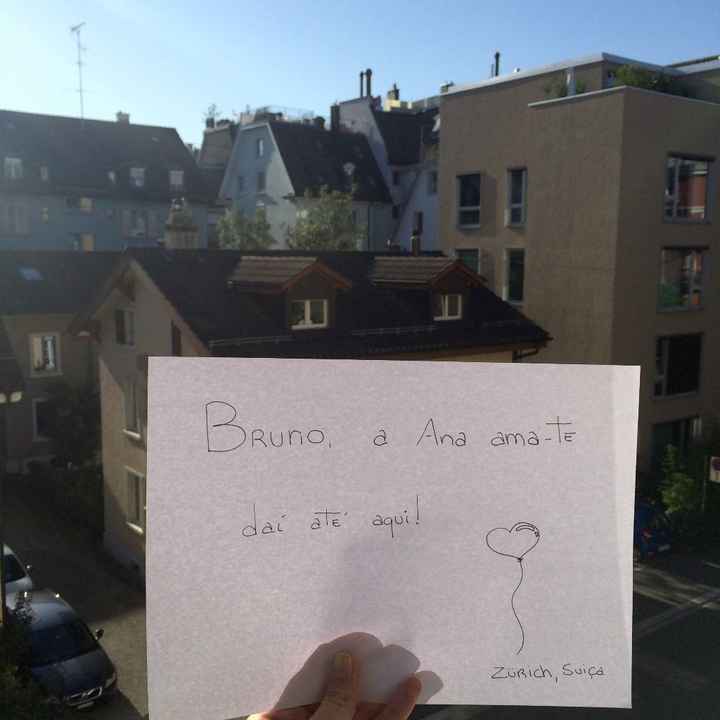 Bruno, a Ana ama-te
daí até aqui!
Zürich, Suiça